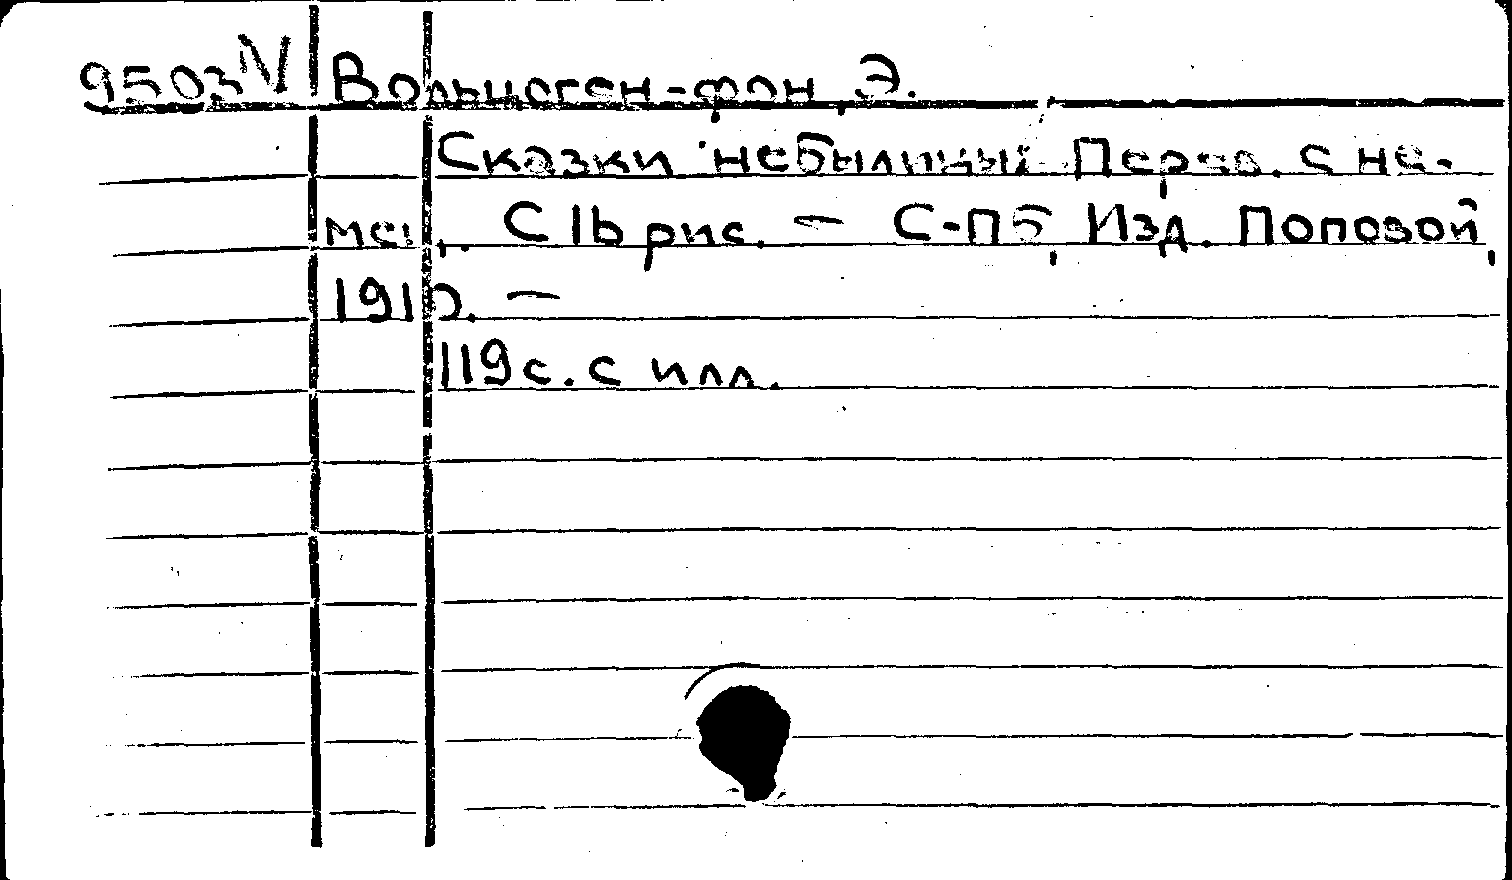 9503 IV Вольцоген-фон, Э.
Сказки небылицы. Перев. с не-
мец., С 16 рис. — С-Пб, Изд. Поповой,
1910. —
119 с. с илл.